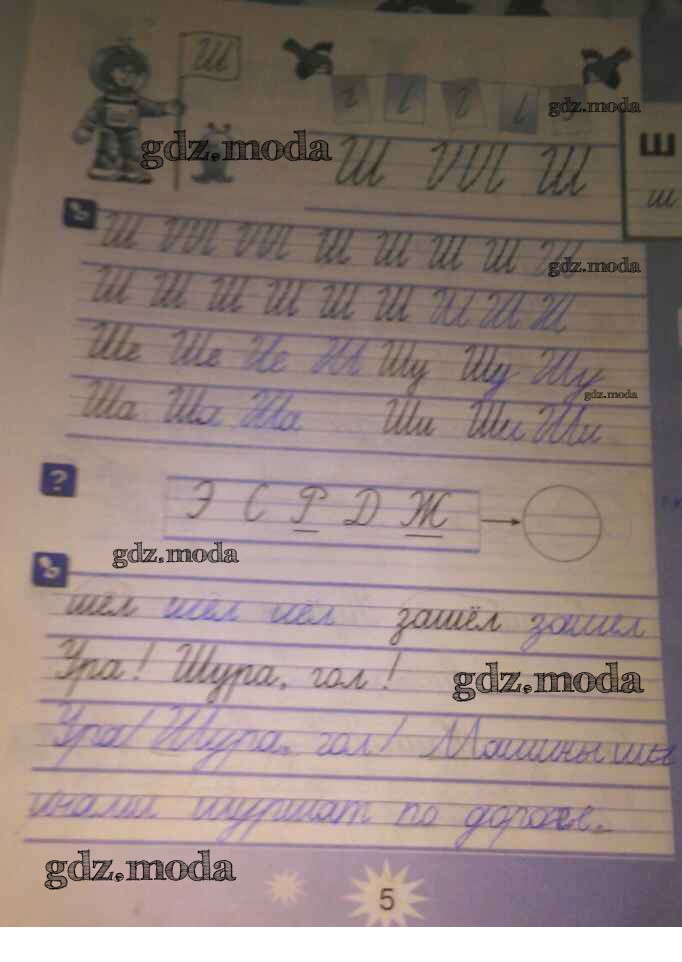 Ш
gdz.moda
gdz.moda
Ш Ш Ш
Ш
ш
Ш Ш Ш Ш Ш Ш Ш Ш
gdz.moda
Ш Ш Ш Ш Ш Ш Ш Ш Ш
Ше Ше Ше Шу Шу Шу
gdz.moda
Ша Ша Ша Ши Ши Ши
?
Э С Р Д Ж
gdz.moda
шёл шёл шёл зашёл зашёл
Ура! Шура, гол!
gdz.moda
Ура! Шура, гол! Машины ши
шуршат по дороге.
gdz.moda
5